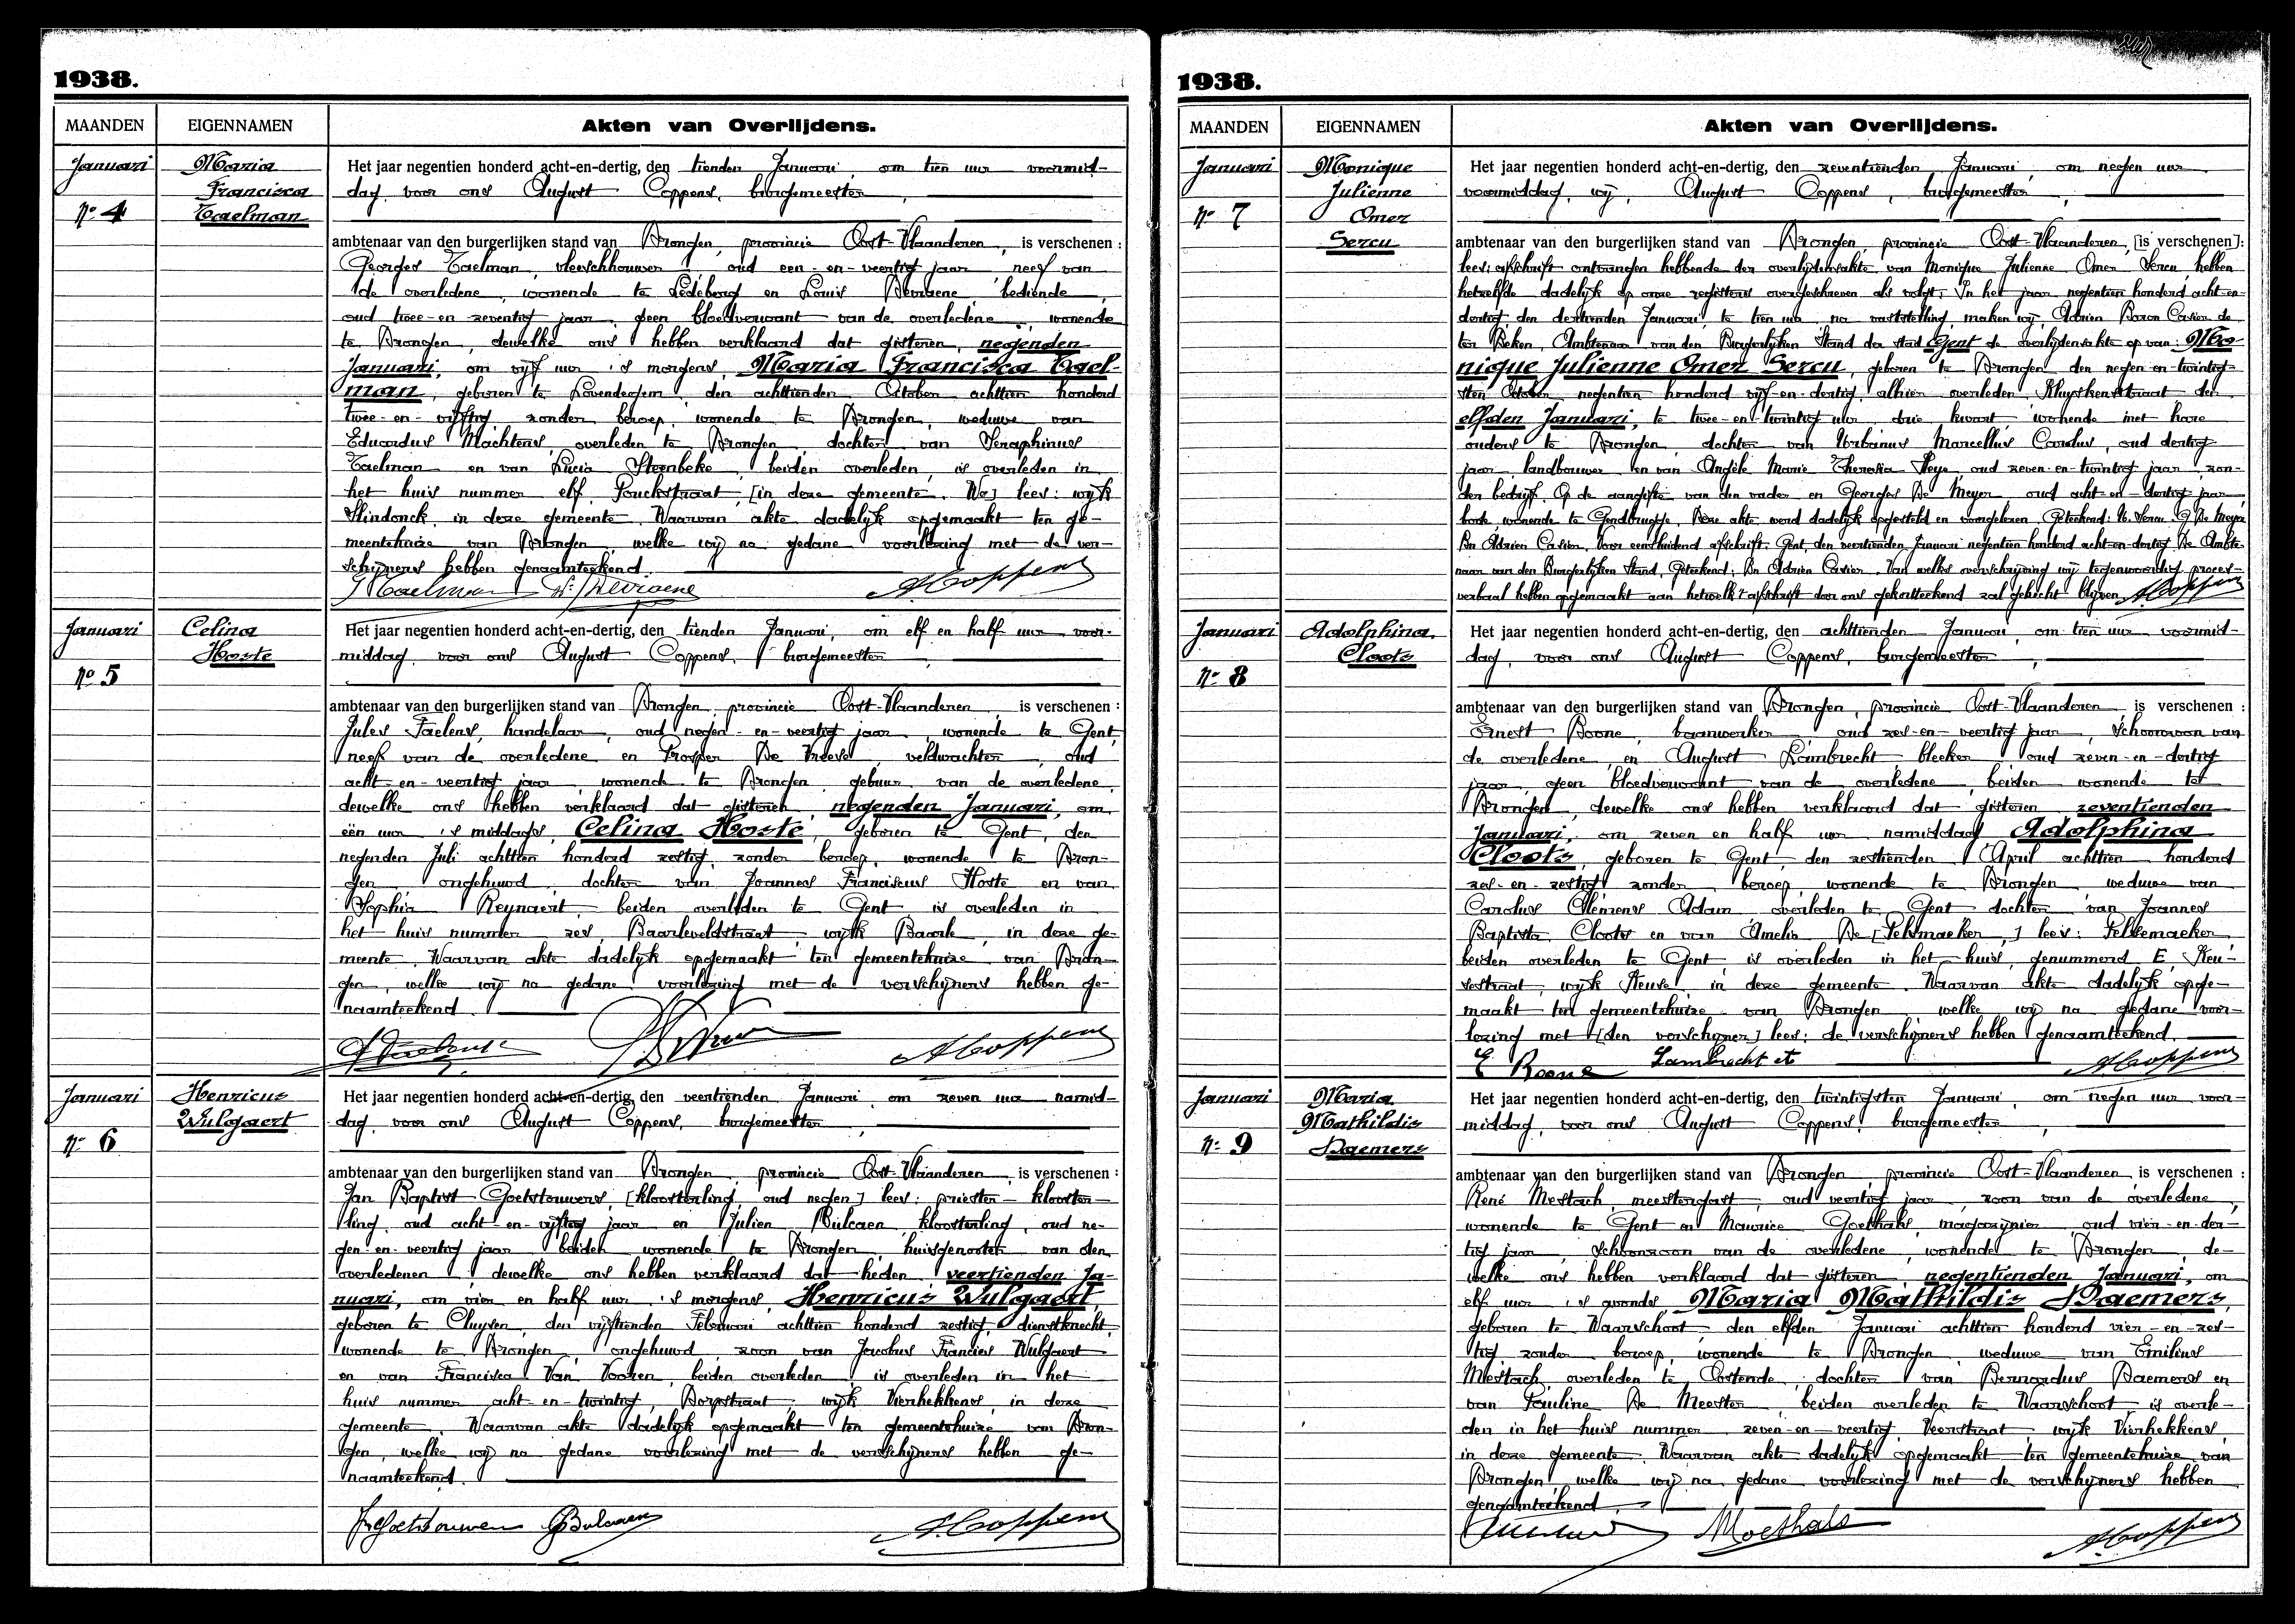 1938.
MAANDEN
EIGENNAMEN
Akten van Overlijdens.
Januari
Nº 4
Maria
Francisca
Taelman
Het jaar negentien honderd acht-en-dertig, den tienden Januari, om tien uur voormid-
dag, voor ons August Coppens, burgemeester,
ambtenaar van den burgerlijken stand van Drongen, provincie Oost-Vlaanderen, is verschenen:
Georges Taelman, vleeschhouwer, oud een-en-veertig jaar, neef van
de overledene, wonende te Ledeberg en Louis Devraene, bediende,
oud twee-en-zeventig jaar, geen bloedverwant van de overledene, wonende
te Drongen, dewelke ons hebben verklaard dat gisteren, negenden
Januari, om vijf uur 's morgens, Maria Francisca Tael-
man, geboren te Lovendegem, den achttienden October achttien honderd
twee-en-vijftig, zonder beroep, wonende te Drongen, weduwe van
Eduardus Machtens, overleden te Drongen, dochter van Seraphinus
Taelman en van Lucia Steenbeke, beiden overleden, is overleden in
het huis nummer elf, Ponckstraat, [in deze gemeente. Wa] lees: wijk
Slindonck, in deze gemeente. Waarvan akte dadelijk opgemaakt ten ge-
meentehuize van Drongen, welke wij na gedane voorlezing met de ver-
schijners hebben genaamteekend.
G Taelman Ls Devraene A. Coppens
Januari
Nº 5
Celina
Hoste
Het jaar negentien honderd acht-en-dertig, den tienden Januari, om elf en half uur voor-
middag, voor ons August Coppens, burgemeester,
ambtenaar van den burgerlijken stand van Drongen, provincie Oost-Vlaanderen, is verschenen:
Jules Faelens, handelaar, oud negen-en-veertig jaar, wonende te Gent,
neef van de overledene en Prosper De Vreese, veldwachter, oud
acht-en-veertig jaar, wonende te Drongen, gebuur van de overledene,
dewelke ons hebben verklaard dat gisteren, negenden Januari, om
één uur 's middags, Celina Hoste, geboren te Gent, den
negenden Juli achttien honderd zestig, zonder beroep, wonende te Dron-
gen, ongehuwd, dochter van Joannes Franciscus Hoste en van
Sophia Reynaert, beiden overleden te Gent is overleden in
het huis nummer zes, Baarleveldstraat, wijk Baarle, in deze ge-
meente. Waarvan akte dadelijk opgemaakt ten gemeentehuize van Dron-
gen, welke wij na gedane voorlezing met de verschijners hebben ge-
naamteekend.
A. Coppens
Januari
Nº 6
Henricus
Wulgaert
Het jaar negentien honderd acht-en-dertig, den veertienden Januari, om zeven uur namid-
dag, voor ons August Coppens, burgemeester,
ambtenaar van den burgerlijken stand van Drongen, provincie Oost-Vlaanderen, is verschenen:
Jan Baptist Goetstouwers, [kloosterling, oud negen] lees: priester-klooster-
ling, oud acht-en-vijftig jaar en Julien Bulcaen, kloosterling, oud ne-
gen-en-veertig jaar, beiden wonende te Drongen, huisgenooten van den
overledenen, dewelke ons hebben verklaard dat heden, veertienden Ja-
nuari, om vier en half uur 's morgens, Henricus Wulgaert,
geboren te Cluysen, den vijftienden Februari achttien honderd zestig, dienstknecht,
wonende te Drongen, ongehuwd, zoon van Jacobus Francies Wulgaert
en van Francisca Van Vooren, beiden overleden, is overleden in het
huis nummer acht-en-twintig, Dorpstraat, wijk Vierhekkens, in deze
gemeente. Waarvan akte dadelijk opgemaakt ten gemeentehuize van Dron-
gen, welke wij na gedane voorlezing met de verschijners hebben ge-
naamteekend.
JB Goetstouwers J Bulcaen A. Coppens
1938.
MAANDEN
EIGENNAMEN
Akten van Overlijdens.
Januari
Nº 7
Monique
Julienne
Omer
Sercu
Het jaar negentien honderd acht-en-dertig, den zeventienden Januari, om negen uur
voormiddag, wij, August Coppens, burgemeester,
ambtenaar van den burgerlijken stand van Drongen, provincie Oost-Vlaanderen, [is verschenen]:
lees: afschrift ontvangen hebbende der overlijdensakte van Monique Julienne Omer Sercu, hebben
hetzelfde dadelijk op onze registers overgeschreven als volgt: In het jaar negentien honderd acht-en-
dertig den dertienden Januari, te tien uur, na vaststelling, maken wij, Adrien Baron Casier de
ter Beken, Ambtenaar van den Burgerlijken Stand der stad Gent de overlijdensakte op van: Mo-
nique Julienne Omer Sercu, geboren te Drongen den negen-en-twintig-
sten October negentien honderd vijf-en-dertig, alhier overleden Kluyskensstraat den
elfden Januari, te twee-en-twintig uur, drie kwart, wonende met hare
ouders te Drongen, dochter van Urbanus Marcellus Carolus, oud dertig
jaar, landbouwer en van Angèle Marie Theresia Heye, oud zeven-en-twintig jaar, zon-
der bedrijf. Op de aangifte van den vader en Georges De Meyer, oud acht-en-dertig jaar,
bode, wonende te Gendbrugge. Deze akte werd dadelijk opgesteld en voorgelezen. Geteekend: U. Sercu. G De Meyer
Bn Adrien Casier. Voor eensluidend afschrift. Gent, den veertienden Januari negentien honderd acht-en-dertig De Ambte-
naar van den Burgerlijken Stand, Geteekend: Bn Adrien Casier. Van welke overschrijving wij tegenwoordig proces-
verbaal hebben opgemaakt aan hetwelk 't afschrift door ons gekortteekend zal gehecht blijven A. Coppens
Januari
Nº 8
Adolphina
Cloots
Het jaar negentien honderd acht-en-dertig, den achttienden Januari, om tien uur voormid-
dag, voor ons August Coppens, burgemeester,
ambtenaar van den burgerlijken stand van Drongen, provincie Oost-Vlaanderen, is verschenen:
Ernest Boone, baanwerker, oud zes-en-veertig jaar, schoonzoon van
de overledene, en August Lambrecht, bleeker, oud zeven-en-dertig
jaar, geen bloedverwant van de overledene, beiden wonende te
Drongen, dewelke ons hebben verklaard dat gisteren, zeventienden
Januari, om zeven en half uur namiddag Adolphina
Cloots, geboren te Gent, den zestienden April achttien honderd
zes-en-zestig, zonder beroep, wonende te Drongen, weduwe van
Carolus Clemens Adam, overleden te Gent, dochter van Joannes
Baptista Cloots en van Amelia De [Pelsmaeker,] lees: Pelsemaeker,
beiden overleden te Gent is overleden in het huis, genummerd E, Keu-
zestraat, wijk Keuze, in deze gemeente. Waarvan akte dadelijk opge-
maakt ten gemeentehuize van Drongen welke wij na gedane voor-
lezing met [den verschijner] lees: de verschijners hebben genaamteekend.
E Boone Lambrecht A. Coppens
Januari
Nº 9
Maria
Mathildis
Daemers
Het jaar negentien honderd acht-en-dertig, den twintigsten Januari, om negen uur voor-
middag, voor ons August Coppens, burgemeester,
ambtenaar van den burgerlijken stand van Drongen, provincie Oost-Vlaanderen, is verschenen:
René Mestach, meestergast, oud veertig jaar, zoon van de overledene,
wonende te Gent en Maurice Goethals, magazijnier, oud vier-en-der-
tig jaar, schoonzoon van de overledene, wonende te Drongen, de-
welke ons hebben verklaard dat gisteren, negentienden Januari, om
elf uur 's avonds Maria Mathildis Daemers,
geboren te Waarschoot, den elfden Januari achttien honderd vier-en-zes-
tig, zonder beroep, wonende te Drongen, weduwe van Emilius
Mestach, overleden te Oostende, dochter van Bernardus Daemers en
van Pauline De Meester, beiden overleden te Waarschoot, is overle-
den in het huis nummer zeven-en-veertig, Veerstraat, wijk Vierhekkens,
in deze gemeente. Waarvan akte dadelijk opgemaakt ten gemeentehuize van
Drongen, welke wij na gedane voorlezing met de verschijners hebben
genaamteekend.
MGoethals A. Coppens